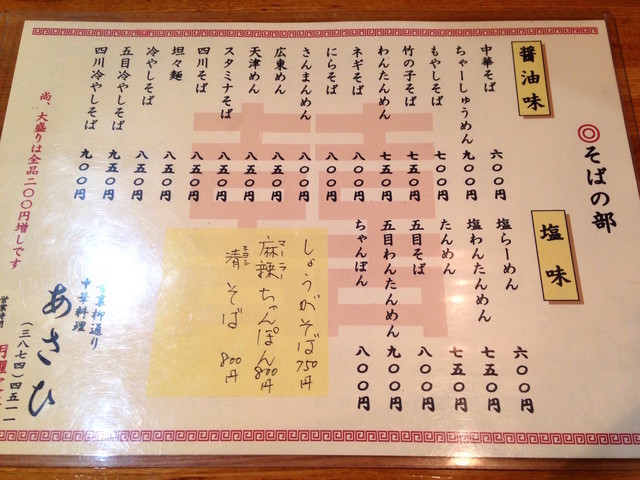 ◎そばの部
醤油味
中華そば 六〇〇円
ちゃーしゅうめん 九〇〇円
もやしそば 七〇〇円
竹の子そば 七五〇円
わんたんめん 七五〇円
ネギそば 八〇〇円
にらそば 八〇〇円
さんまんめん 八〇〇円
広東めん 八五〇円
天津めん 八五〇円
スタミナそば 八五〇円
四川そば 八五〇円
坦々麺 八五〇円
冷やしそば 八五〇円
五目冷やしそば 九五〇円
四川冷やしそば 九〇〇円
塩味
塩らーめん 六〇〇円
塩わんたんめん 七五〇円
たんめん 七五〇円
五目そば 八〇〇円
五目わんたんめん 九〇〇円
ちゃんぽん 八〇〇円
しょうがそば 750円
麻辣ちゃんぽん 800円
マーラー
清そば 800円
尚、大盛りは全品二〇〇円増しです
柳通り
中華料理
あさひ
(三八七四)四五一一
営業時間
月曜定